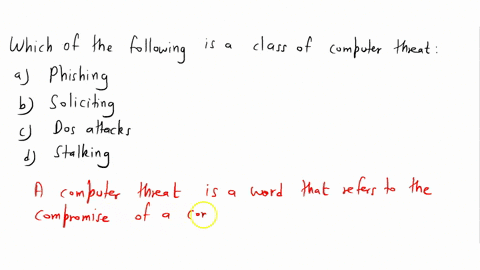 Which of the following is a class of computer threat:
a) Phishing
b) Soliciting
c) Dos attacks
d) Stalking
A computer threat is a word that refers to the
compromise of a cor